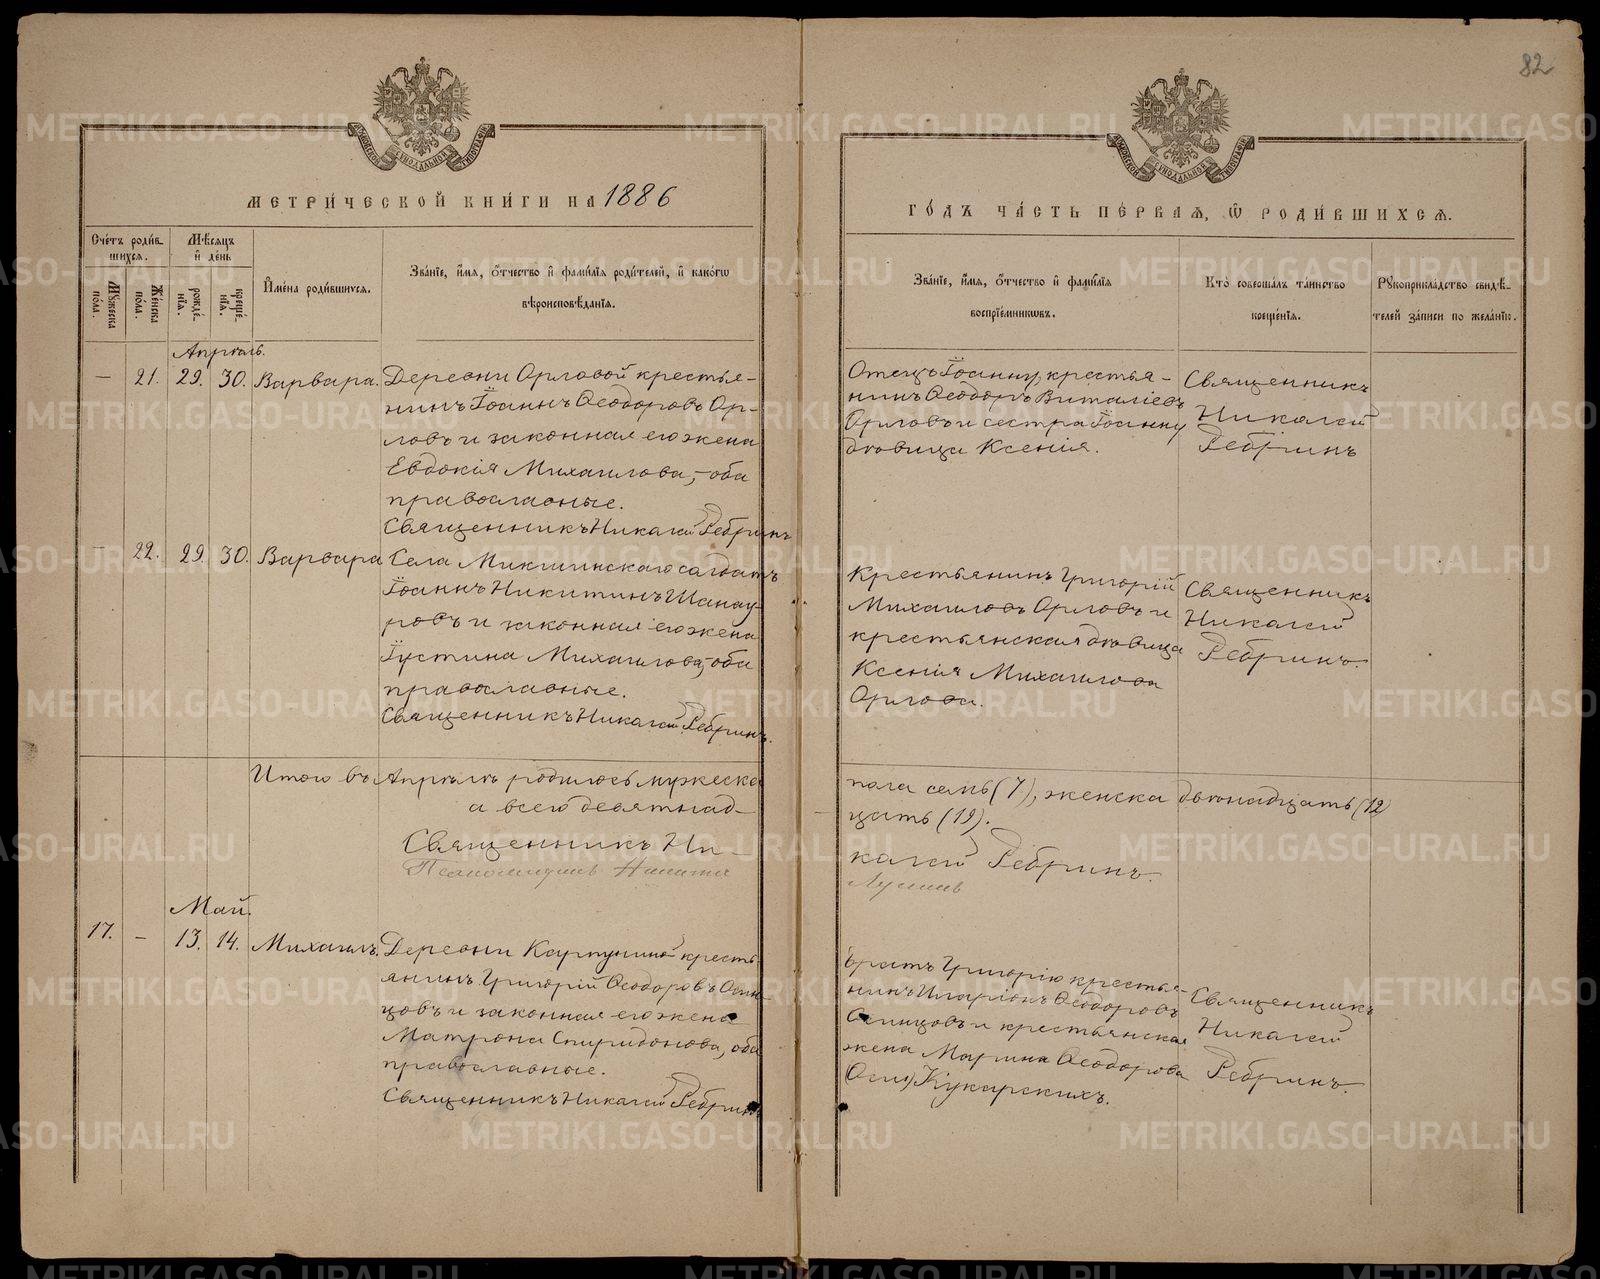 82
МЕТРИ́ЧЕСКОЙ КНИ́ГИ НА 1886
ГО́ДЪ ЧА́СТЬ ПЕ́РВАѦ, Ѿ РОДИ́ВШИХСѦ.
Сче́тъ роди́в-
шихсѧ.
Мѹжеска по́ла.
Же́нска по́ла.
Мѣ́сѧцъ и де́нь
рожде́нїѧ.
креще́нїѧ.
Имена роди́вшихсѧ.
Зва́нїе, и́мѧ, о́тчество и фами́лїѧ роди́телей, и како́гѡ
вѣроисповѣ́данїѧ.
Зва́нїе, и́мѧ, о́тчество и фами́лїѧ
воспрїе́мникѡвъ.
Кто̀ соверша́лъ та́инство
креще́нїѧ.
Рѹкоприкла́дство свидѣ́-
телей за́писи по жела́нїю.
Апрѣль.
— 21. 29. 30. Варвара.
Деревни Орловой крестья-
нинъ Іоаннъ Ѳеодоровъ Ор-
ловъ и законная его жена
Евдокія Михаилова, оба
православные.
Священникъ Николай Ребринъ
Отецъ Іоанну, крестья-
нинъ Ѳеодоръ Виталіевъ
Орловъ и сестра Іоанну
дѣвица Ксенія.
Священникъ
Николай
Ребринъ
— 22. 29. 30. Варвара
Села Микшинскаго солдатъ
Іоаннъ Никитинъ Шанау-
ровъ и законная его жена
Іустина Михаилова, оба
православные.
Священникъ Николай Ребринъ.
Крестьянинъ Григорій
Михаиловъ Орловъ и
крестьянская дѣвица
Ксенія Михаилова
Орлова.
Священникъ
Николай
Ребринъ.
Итого въ Апрѣлѣ родилось мужеска
пола семь (7), женска двѣнадцать (12)
а всего девятнад-
цать (19).
Священникъ Ни-
колай Ребринъ.
Псаломщикъ Никита
Май.
17. — 13. 14. Михаилъ.
Деревни Карпушиной кресть-
янинъ Григорій Ѳеодоровъ Осин-
цовъ и законная его жена
Матрона Спиридонова, оба
православные.
Священникъ Николай Ребринъ
братъ Григорію крестья-
нинъ Иларіонъ Ѳеодоровъ
Осинцовъ и крестьянская
жена Марина Ѳеодорова
Кукарскихъ.
Священникъ
Николай
Ребринъ.
METRIKI.GASO-URAL.RU